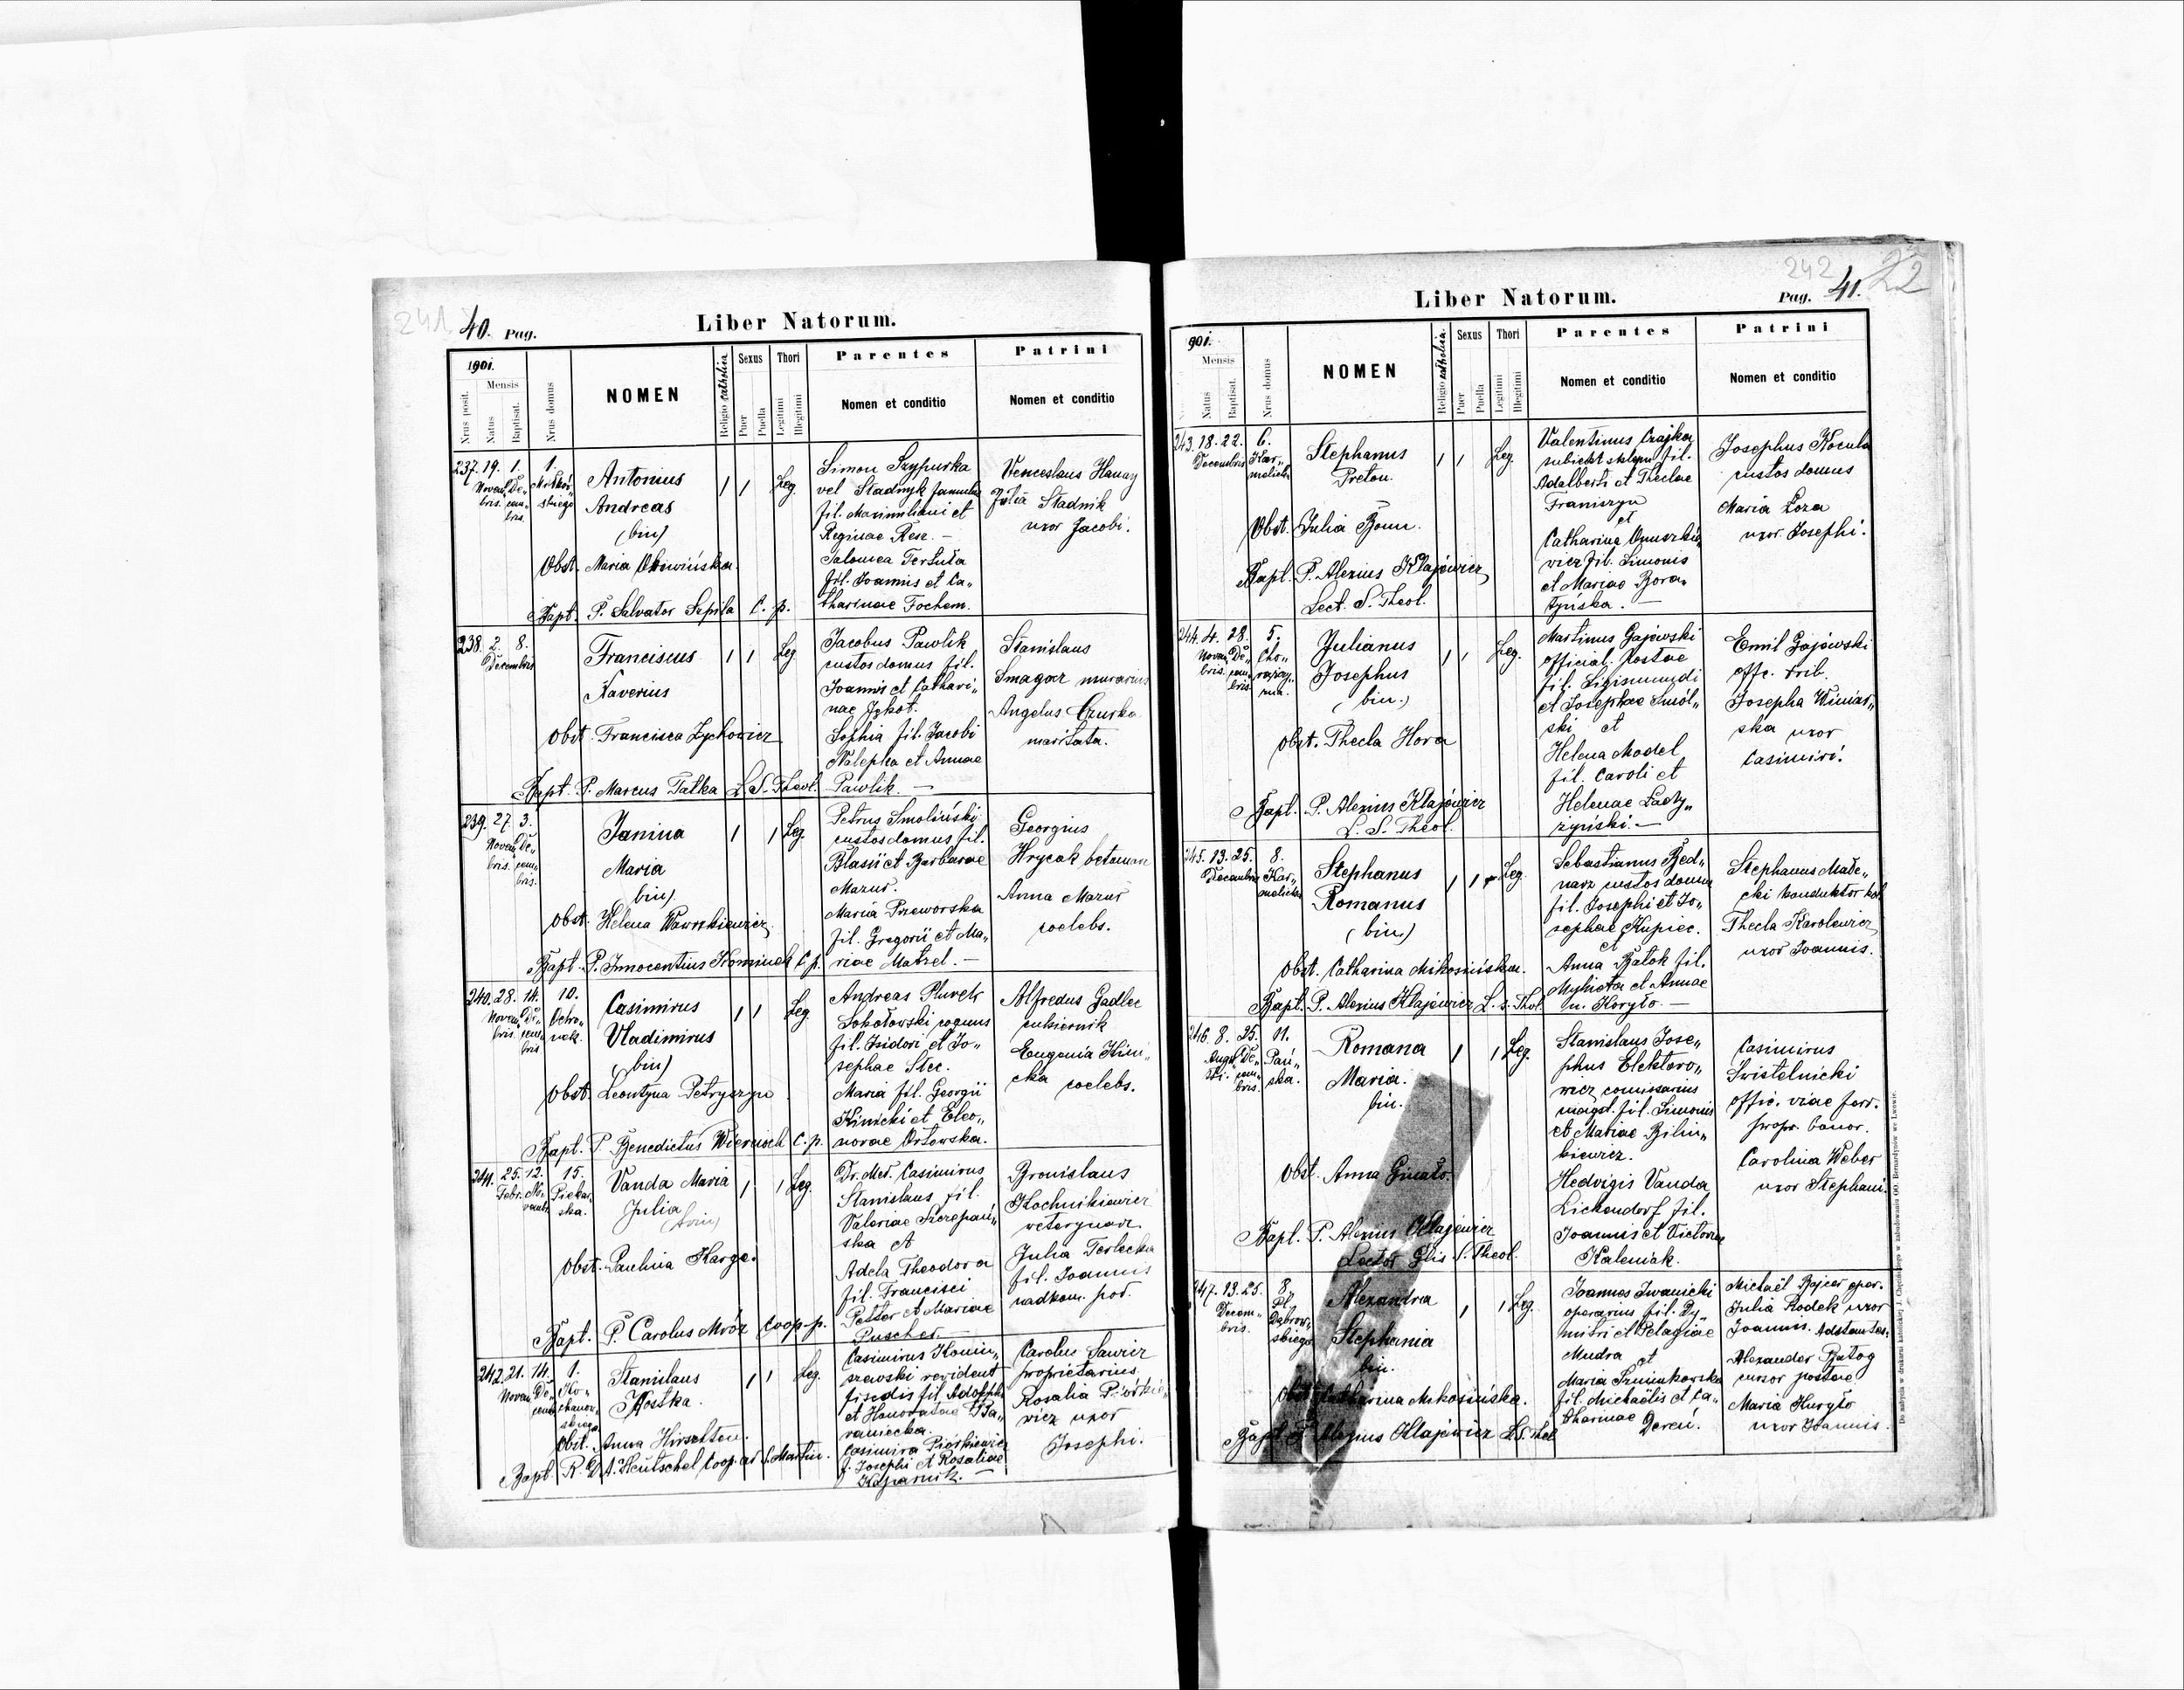 241
40. Pag.
Liber Natorum.
1901.
Nrus posit.
Mensis
Natus
Baptisat.
Nrus domus
NOMEN
Religio catholica
Sexus
Puer
Puella
Thori
Legitimi
Illegitimi
Parentes
Nomen et conditio
Patrini
Nomen et conditio
237. 19. 1. 1.
Antonius
Andreas
(bin)
Obst. Maria
Bapt. P. Salvator Szpila C. p.
1 1 Leg.
Simon Szypurka
vel Stadnyk famulus
fil. Maximiliani et
Reginae Resz. —
Salomea
fil. Joannis et Ca„
tharinae Fochem.
Venceslaus Hanay
Julia Stadnik
uxor Jacobi.
238. 2. 8.
Decembris
Franciscus
Xaverius
Obst. Francisca Zychowicz
Bapt. P. Marcus Talka L. S. Theol.
1 1 Leg
Jacobus Pawlik
custos domus fil.
Joannis et Cathari„
nae
Sophia fil. Jacobi
Nalepka et Annae
Pawlik. —
Stanislaus
Smagacz murarius
Angelus Czurko
maritata.
239. 27. 3.
Novem De„
bris. cem
bris.
Janina
Maria
bin)
Obst. Helena Wawrzkiewicz
Bapt. P. Innocentius Kominek C. p.
1 1 Leg.
Petrus Smoliński
custos domus fil.
Blasii et Barbarae
Mazur.
Maria Przeworska
fil. Gregorii et Ma„
riae Matzel. —
Georgius
Hrycak
Anna Mazur
coelebs.
240. 28. 14. 10.
Novem De„
bris. cem
bris
Casimirus
Vladimirus
(bin)
Obst. Leontyna Petryszyn
Bapt. P. Benedictus Wiercioch C. p.
1 1 Leg.
Andreas
Sokołowski coquus
fil. Isidori et Jo„
sephae Stec.
Maria fil. Georgii
Kinicki et Eleo„
norae Orłowska.
Alfredus Gadlec
cukiernik
Eugenia Kini„
cka coelebs.
241. 25. 12. 15.
Febr. No„
vemb.
Piekar„
ska.
Vanda Maria
Julia
(trin)
Obst. Paulina Karge.
Bapt. P. Carolus Mróz Coop. p.
1 1 Leg.
Dr. Med. Casimirus
Stanislaus fil.
Valeriae Szczepań„
ska et
Adela Theodora
fil. Francisci
Petter et Mariae
Puscher. —
Bronislaus
Kochnikiewicz
weterynarz.
Julia Terlecka
fil. Joannis
nadkom. pod.
242. 21. 14. 1.
Stanislaus
Kostka.
Obst. Anna Hirschten.
Bapt. R. D. A. Heutschel Coop. ad S. Martin.
1 1 Leg.
Casimirus Konin„
szewski revident
fil. Adolphi
et Honoratae Ba„
raniecka.
Casimira Piórkiewicz
f. Josephi et Rosaliae
Carolus Sawicz
proprietarius
Rosalia Piórkie„
wicz uxor
Josephi.
242
22
Liber Natorum.
Pag. 41.
901.
Mensis
Natus
Baptisat.
Nrus domus
NOMEN
Religio catholica.
Sexus
Puer
Puella
Thori
Legitimi
Illegitimi
Parentes
Nomen et conditio
Patrini
Nomen et conditio
243. 18. 22. 6.
Decembris
Stephanus
Obst. Julia Bonn.
Bapt. P. Alexius Klajewicz
Lect. S. Theol.
1 1 Leg.
Valentinus Czajka
subiekt sklepu fil.
Adalberti et Theclae
Franiszyn
et
Catharina Onuszkie„
wicz fil. Simonis
et Mariae Bora„
tyńska. —
Josephus Kocula
custos domus
Maria Loza
uxor Josephi.
244. 4. 28. 5.
Novem De„
bris. cem
bris.
Cho„
rążczy„
zna.
Julianus
Josephus
(bin.)
Obst. Thecla Hora
Bapt. P. Alexius Klajewicz
L. S. Theol.
1 1 Leg.
Martinus Gajewski
official. Postae
fil. Sigismundi
et Josephae Smól„
ski et
Helena Model
fil. Caroli et
Helenae Łady„
żyński. —
Emil Gajewski
offc. trib.
Josepha Winiar„
ska uxor
Casimiri.
245. 13. 25. 8.
Decembris
Kar„
melicka
Stephanus
Romanus
(bin)
Obst. Catharina Mikosińska.
Bapt. P. Alexius Klajewicz L. S. Theol.
1 1 Leg.
Sebastianus Bed„
narz custos domus
fil. Josephi et Jo„
sephae Kupiec.
et
Anna Batok fil.
Mykieta et Annae
n. Koryto. —
Stephanus Małe„
cki konduktor kol.
Thecla Karolewicz
uxor Joannis.
246. 8. 25. 11.
Augu De„
sti. cem
bris.
Pań„
ska.
Romana
Maria.
bin.
Obst. Anna Gniato.
Bapt. P. Alexius Klajewicz
Lector Glis S. Theol.
1 1 Leg.
Stanislaus Jose„
phus Elektoro„
wicz comissarius
magst. fil. Simonis
et Mariae Bilin„
kiewicz.
Hedvigis Vanda
Lickendorf fil.
Joannis et Victoriae
Kaleniak.
Casimirus
Swistelnicki
offic. viae ferr.
propr. bonor.
Carolina Weber
uxor Stephani.
247. 13. 25. 8.
Decem„
bris.
Pl.
Dąbrow„
skiego
Alexandra
Stephania
bin.
Obst. Catharina Mikosińska.
Bapt. P. Alexius Klajewicz L. S. Theol
1 1 Leg.
Joannes Iwanicki
operarius fil. Dy„
mitri et Pelagiae
Mudra et
Maria
fil. Michaëlis et Ca„
tharinae Dereń.
Michaël Bajcar oper.
Julia Rodek uxor
Joannis. Adstantes:
Alexander Batog
cursor postae
Maria Huryło
uxor Joannis.
Do nabycia w drukarni katolickiej J. Chęcińskiego w zabudowaniu OO. Bernardynów we Lwowie.